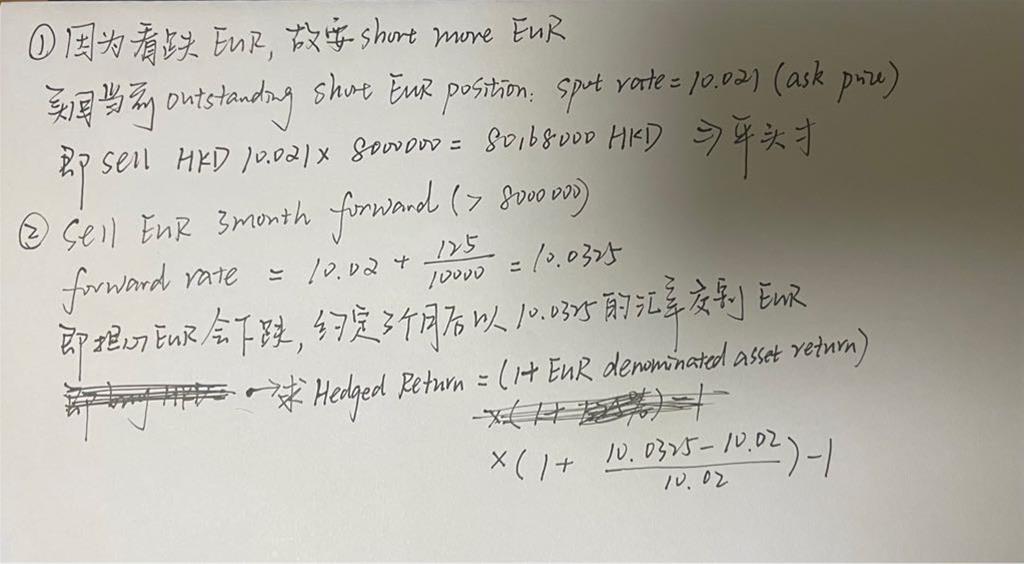 ① 因为看跌 EUR, 故要 short more EUR
买回当前 outstanding short EUR position. spot rate = 10.021 (ask price)
即 sell HKD 10.021 × 8000000 = 80168000 HKD ⇒ 平头寸
② sell EUR 3month forward (> 8000000)
forward rate = 10.02 + 125/10000 = 10.0325
即担心 EUR 会下跌, 约定3个月后以 10.0325 的汇率交割 EUR
→ 求 Hedged Return = (1+ EUR denominated asset return)
× (1 + (10.0325 - 10.02)/10.02) - 1